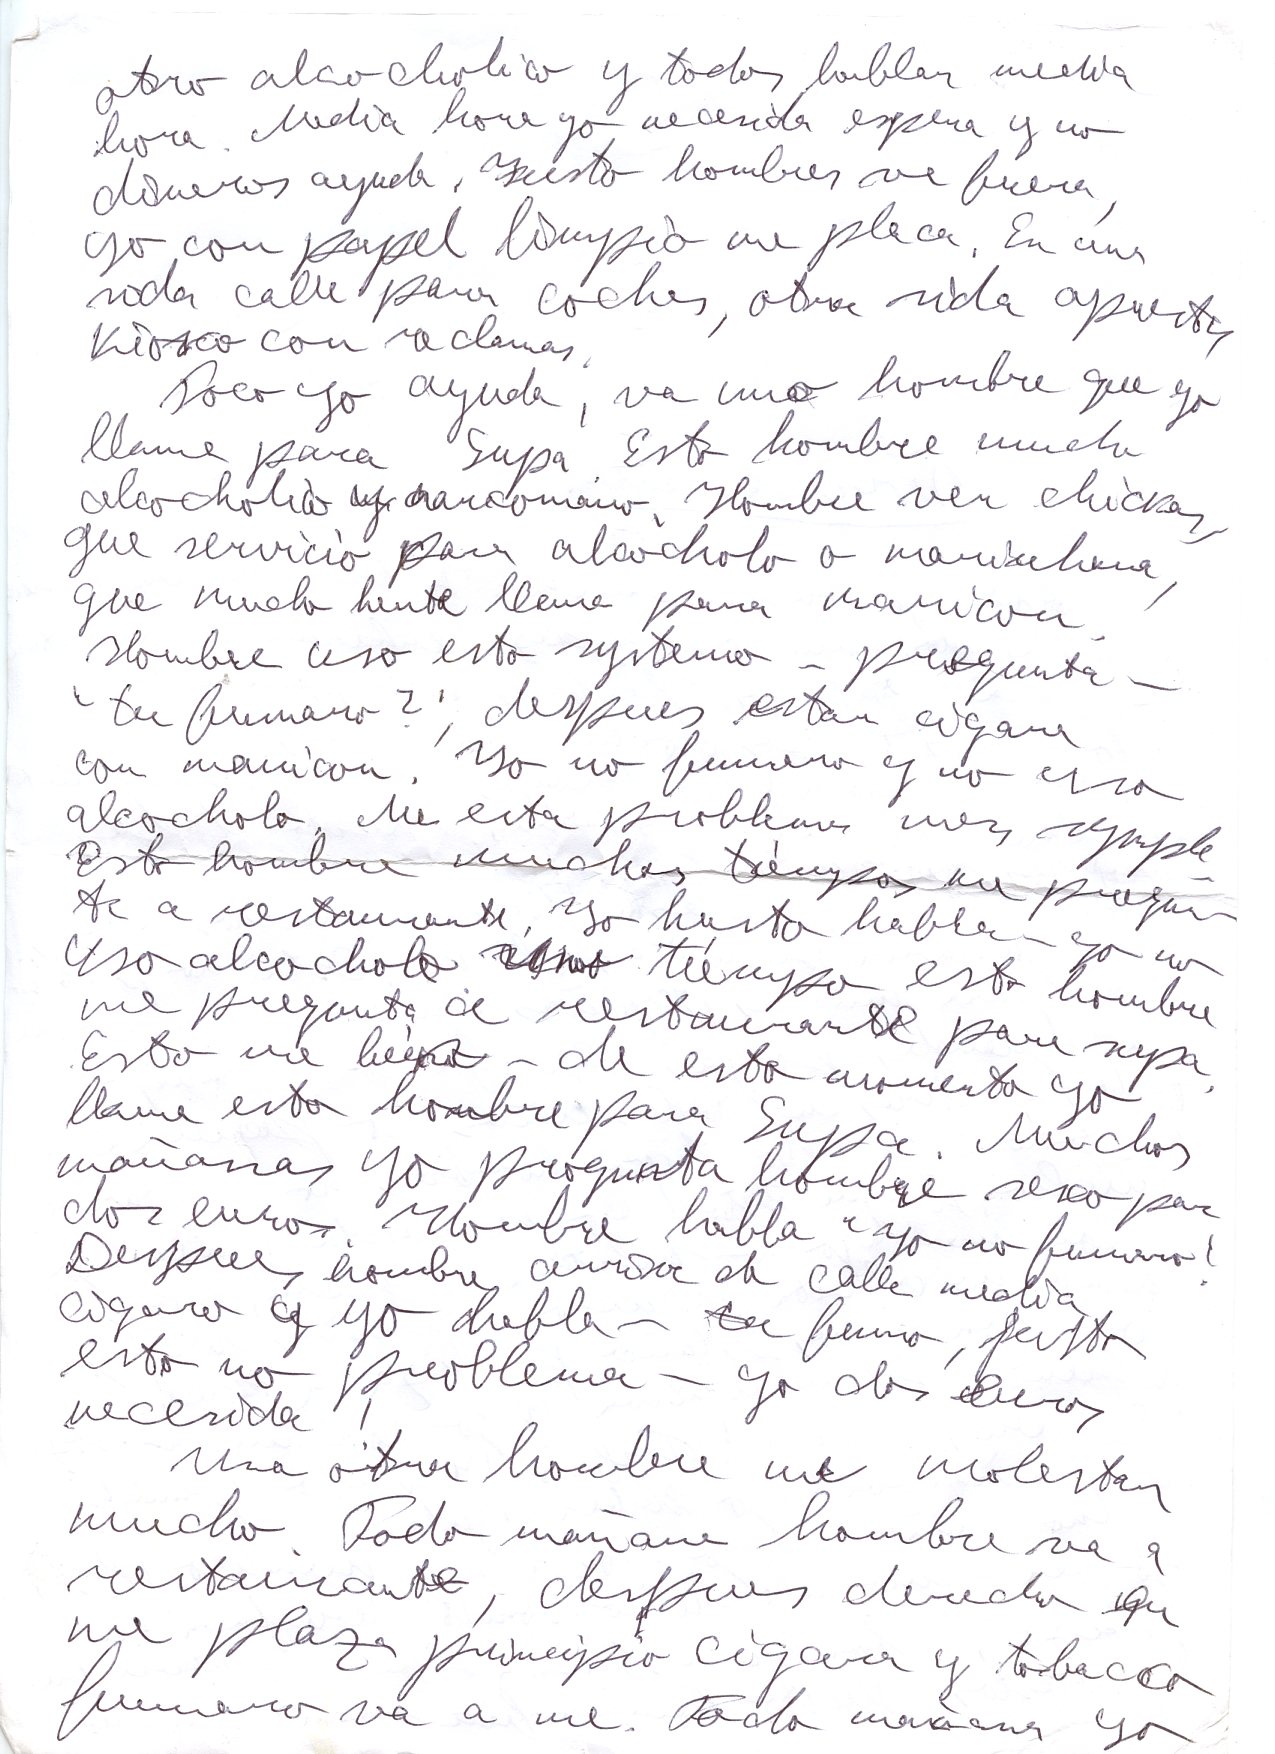 otro alcocholico y todos hablar media
hora. Media hora yo necesida espera y no
dineros ayuda. Justo hombres va fuera,
yo con papel limpio me placa. En una
sida calle para coches, otra sida apuestas
kiosco con reclamas.
Poco yo ayuda, va uno hombre que yo
llama para Supa. Esto hombre mucho
alcocholico y narcomano. Hombre ver chickas,
que servicio para alcocholo o marischuana,
que mucho hente llama para maricon.
Hombre uso esto systemo - pregunta -
"tu fumaro?", despues estar cigara
con maricon. Yo no fumaro y no uso
alcocholo. Me esta problema mas symple
Esto hombre muchas tiempos me pregun-
ta a restaurante. Yo husto habla - yo no
uso alcocholo tiempo esto hombre
me pregunta a restaurante para supa.
Esto me - de esto momento yo
llama esto hombre para Supa. Muchos
mañanas yo progunta hombre sexo par
dos euros. Hombre habla "yo no fumaro!
Despues hombre arriva de calle media
cigaro y yo habla - tu fumo, justo
esto no problema - yo dos euros
necesida!
Una otra hombre me molestar
mucho. Todo mañana hombre va a
restaurante, despues derecho
me plaza principio cigara y tobacco
fumaro va a me. Todo mañana yo